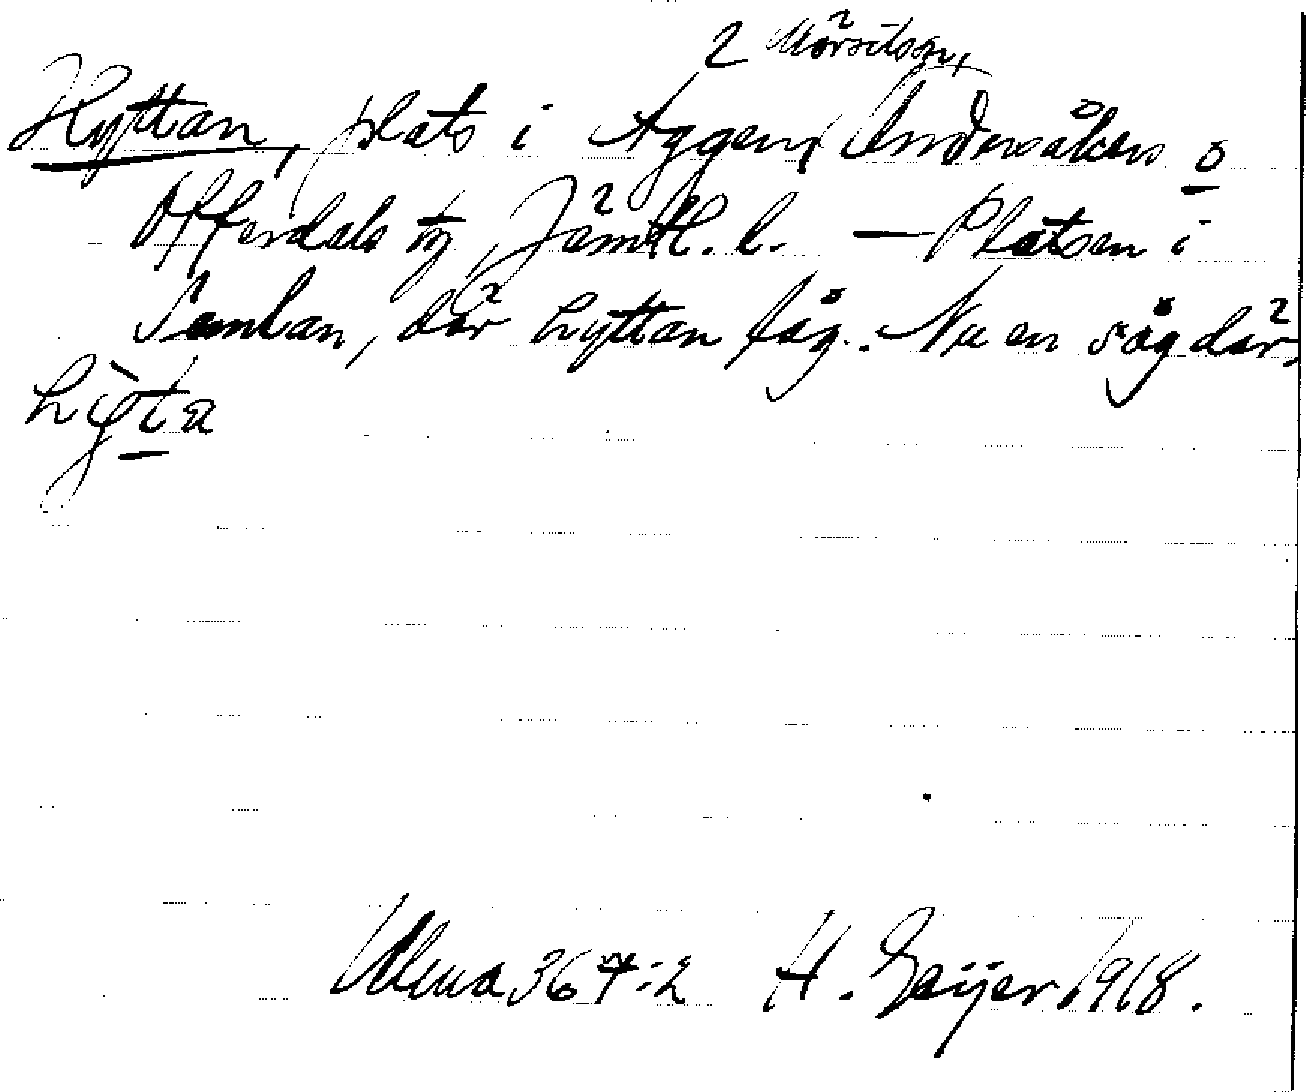 2 Mörsilssn,
Hyttan, plats i Äggen, Undersåkers o
Offerdals tg, Jämtl. l. — Platsen i
Semlan, där hyttan låg. Nu en såg där,
hỳta
Ulma 367:2 H. Geijer 1918.